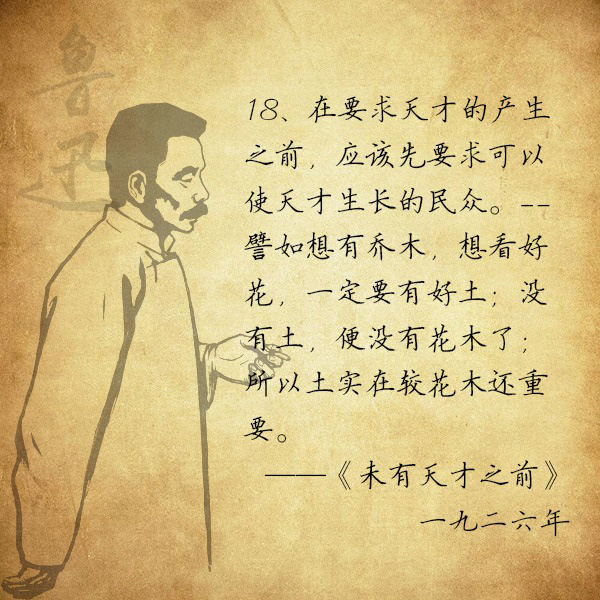 鲁迅
18、在要求天才的产生
之前，应该先要求可以
使天才生长的民众。--
譬如想有乔木，想看好
花，一定要有好土；没
有土，便没有花木了；
所以土实在较花木还重
要。
——《未有天才之前》
一九二六年